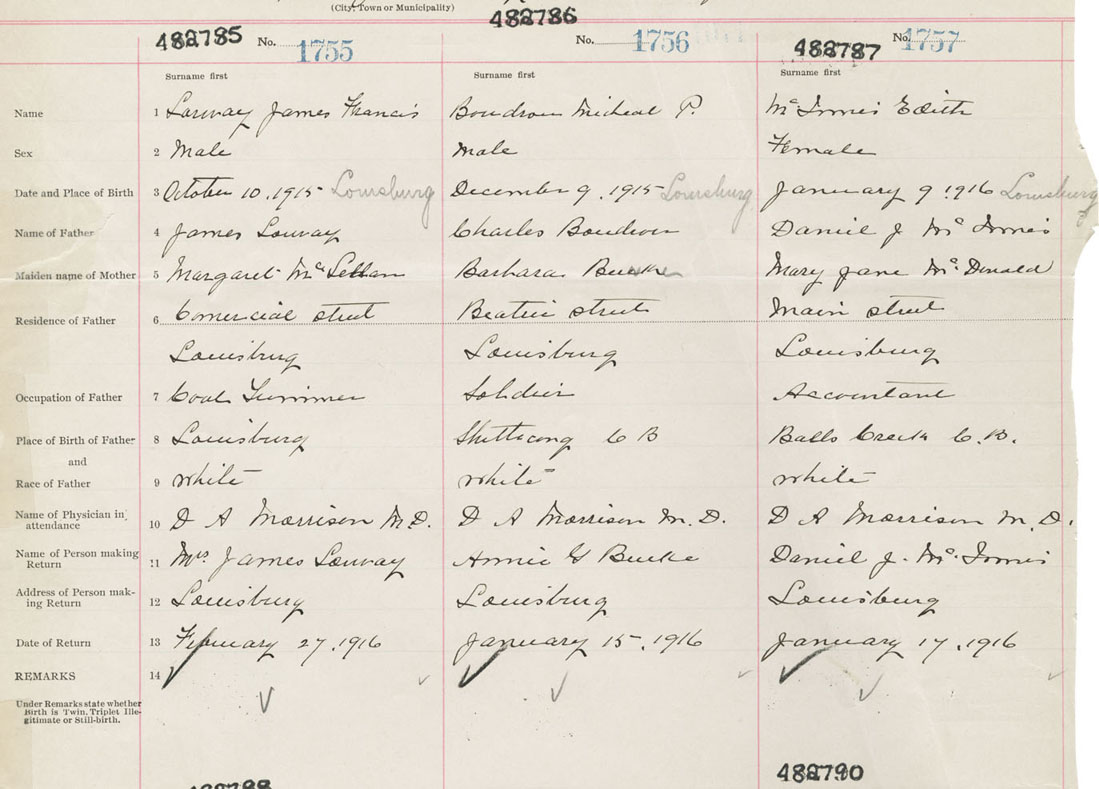 (City, Town or Municipality)
482785 No. 1755 482786 No. 1756 482787 No. 1757
Surname first Surname first Surname first
Name 1 Lorway James Francis Boudrou Micheal P. McInnis Edith
Sex 2 Male Male Female
Date and Place of Birth 3 October 10, 1915 Louisburg December 9, 1915 Louisburg January 9, 1916 Louisburg
Name of Father 4 James Lorway Charles Boudrou Daniel J McInnis
Maiden name of Mother 5 Margaret McLellan Barbara Mary Jane McDonald
Residence of Father 6 Comercial street Beatrie street Main street
Louisburg Louisburg Louisburg
Occupation of Father 7 Coal Trimmer Soldier Accountant
Place of Birth of Father 8 Louisburg C B Balls Creek C. B.
and
Race of Father 9 white white white
Name of Physician in attendance 10 D A Morrison M.D. D A Morrison M. D. D A Morrison M. D.
Name of Person making Return 11 Mrs James Lorway Annie Burke Daniel J. McInnis
Address of Person making Return 12 Louisburg Louisburg Louisburg
Date of Return 13 February 27, 1916 January 15, 1916 January 17, 1916
REMARKS 14
Under Remarks state whether
Birth is Twin, Triplet Ille-
gitimate or Still-birth.
482788 482790